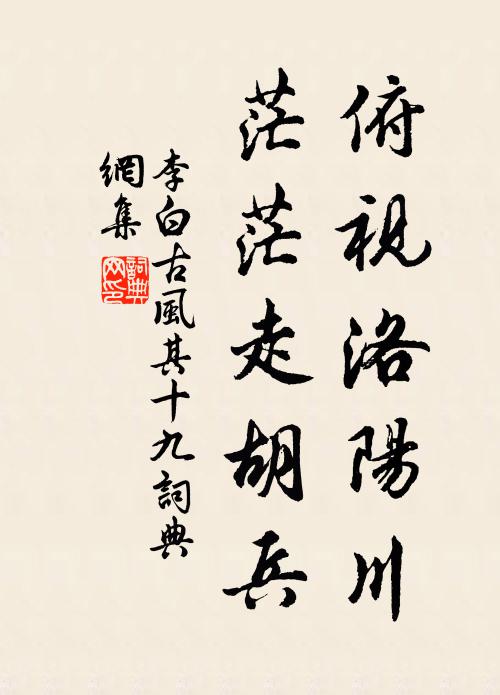 俯視洛陽川
茫茫走胡兵
李白古風其十九詞典
網集
詞典
网印